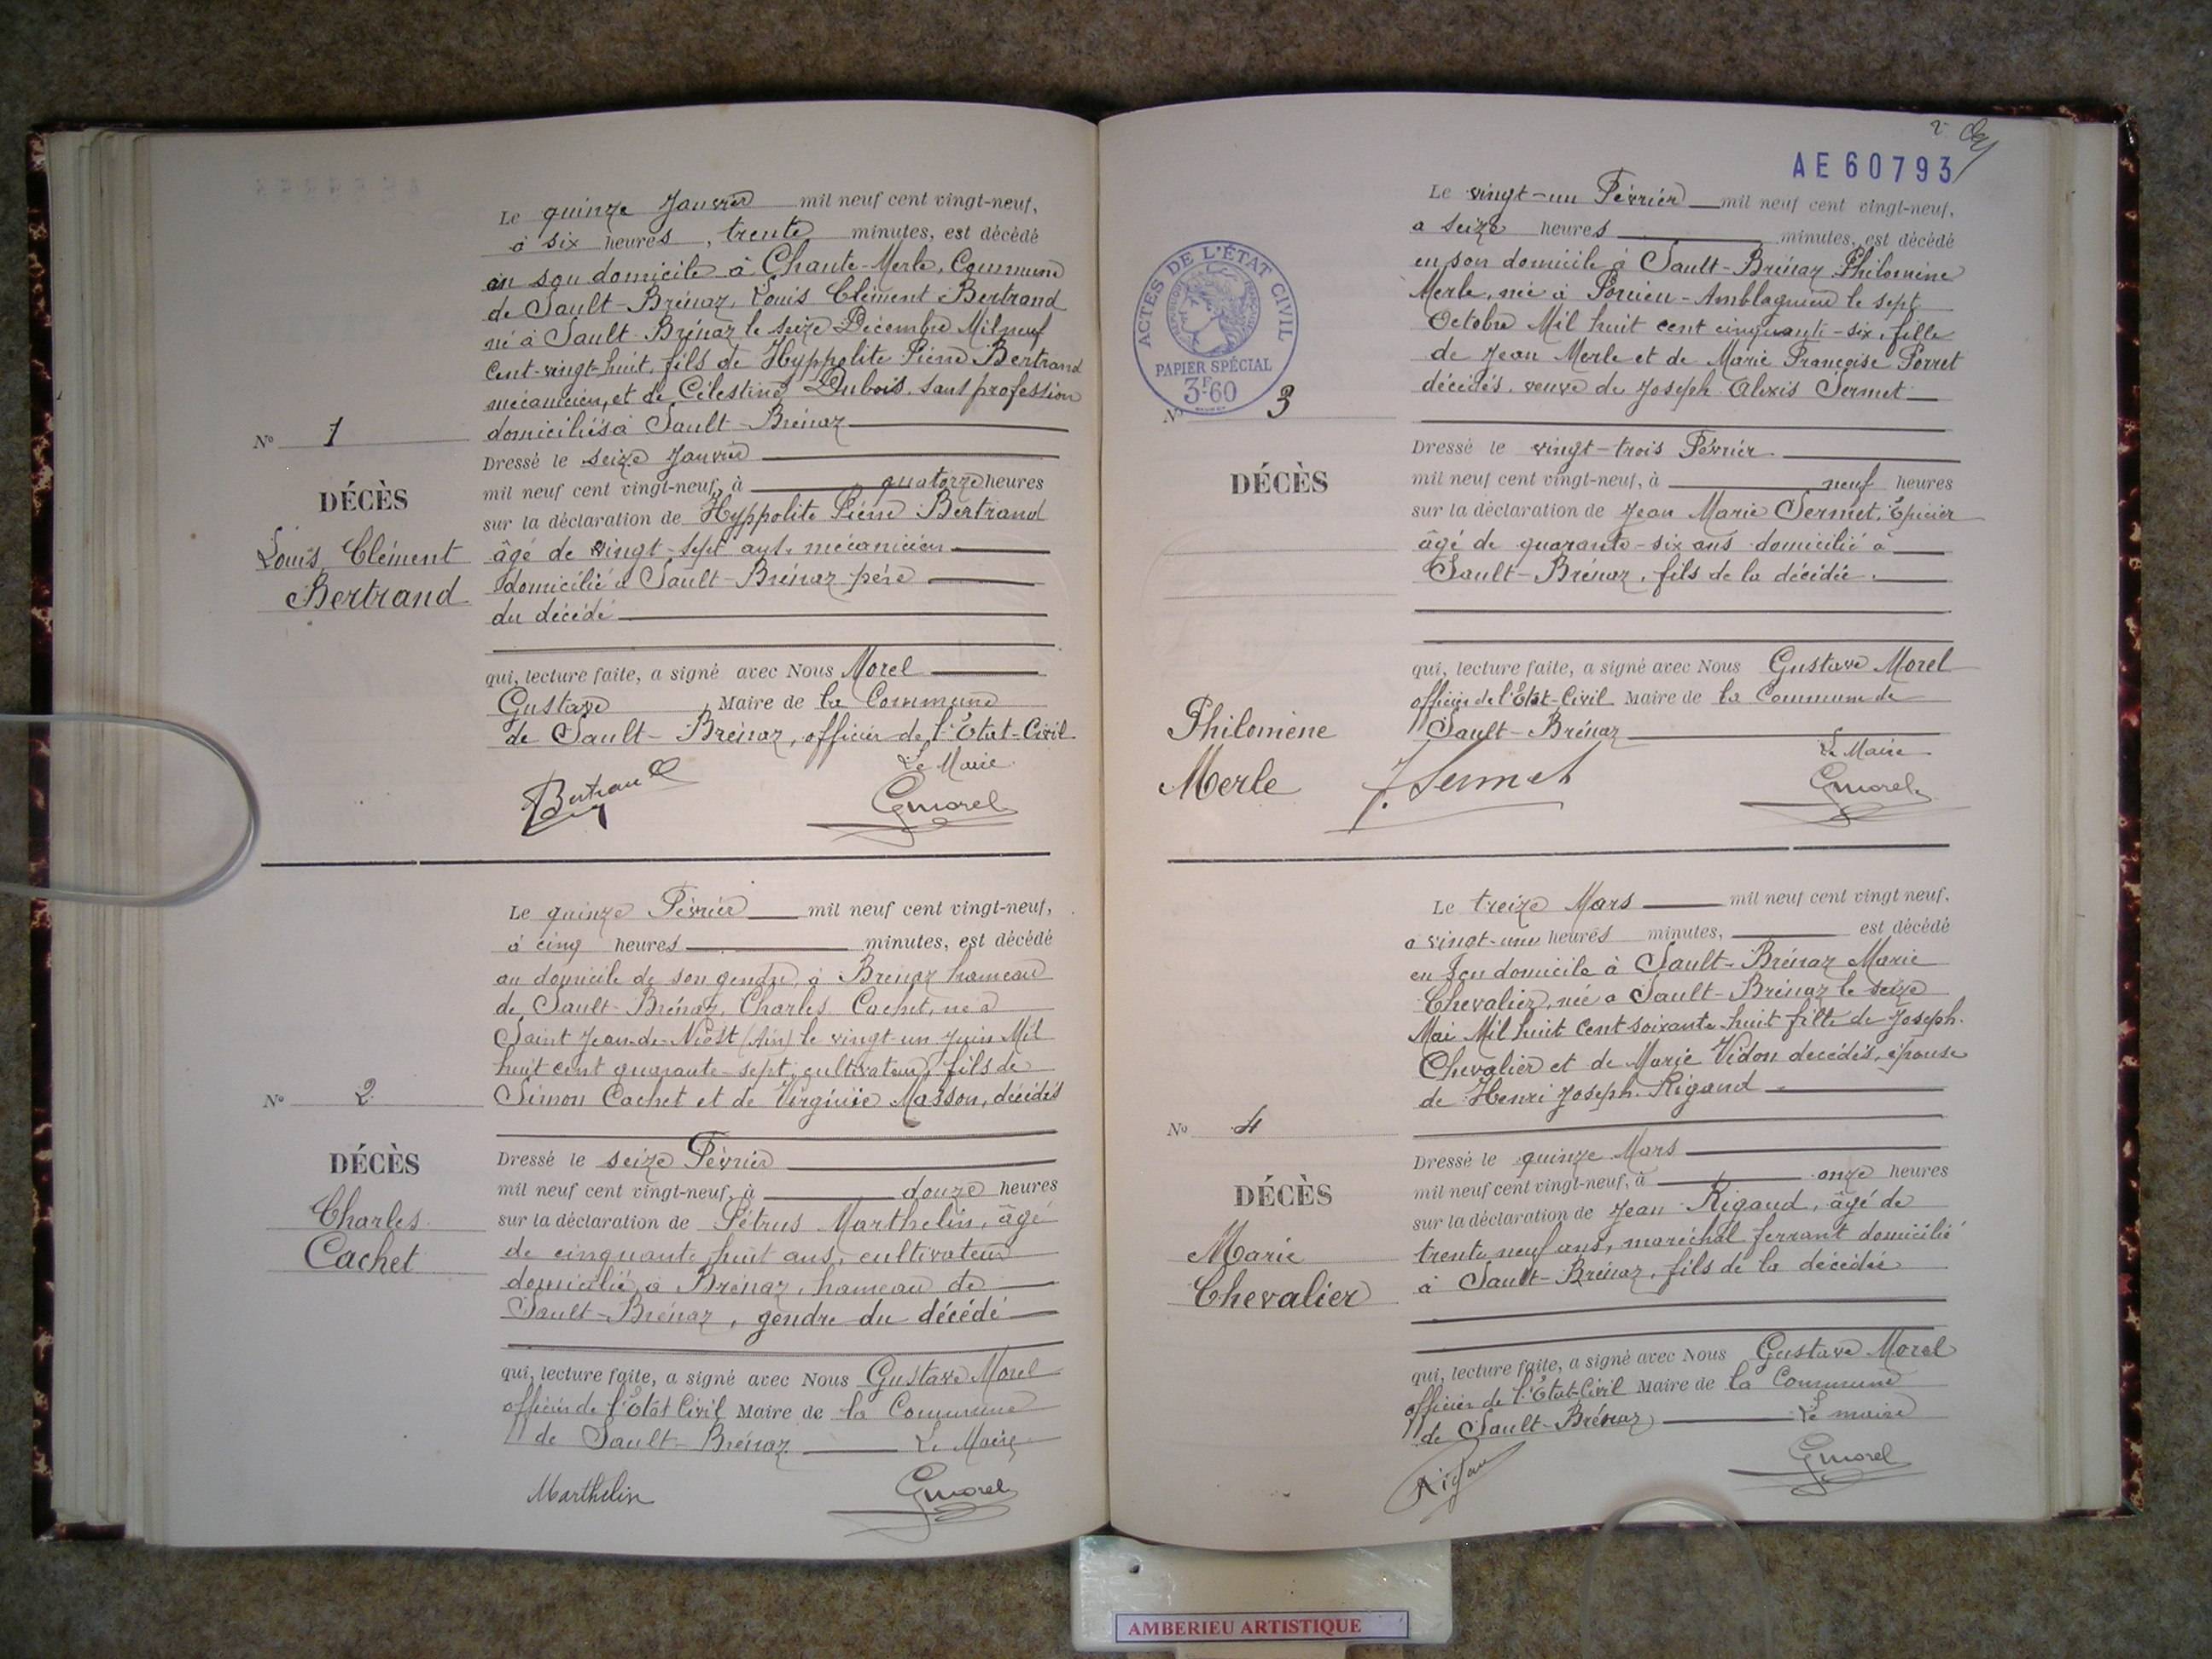 Le quinze Janvier mil neuf cent vingt-neuf,
à six heures, trente minutes, est décédé
en son domicile à Chante-Merle, Commune
de Sault-Brénaz, Louis Clément Bertrand
né à Sault-Brénaz le seize Décembre Mil neuf
Cent-vingt-huit, fils de Hyppolite Pierre Bertrand
mécanicien, et de Célestine Dubois, sans profession
domiciliés à Sault-Brénaz
Nº 1
Dressé le seize Janvier
mil neuf cent vingt-neuf, à quatorze heures
DÉCÈS
sur la déclaration de Hyppolite Pierre Bertrand
Louis Clément
Bertrand
âgé de vingt-sept ans, mécanicien
domicilié à Sault-Brénaz père
du décédé
qui, lecture faite, a signé avec Nous Morel
Gustave, Maire de la Commune
de Sault-Brénaz, officier de l'Etat-Civil
Le Maire
Bertrand
Gmorel
Le quinze Février mil neuf cent vingt-neuf,
à cinq heures minutes, est décédé
au domicile de son gendre, à Brénaz hameau
de Sault-Brénaz, Charles Cachet, né à
Saint Jean-de-Niost (Ain) le vingt-un Juin Mil
huit cent quarante-sept, cultivateur, fils de
Simon Cachet et de Virginie Masson, décédés
Nº 2
DÉCÈS
Charles
Cachet
Dressé le seize Février
mil neuf cent vingt-neuf, à douze heures
sur la déclaration de Pétrus Marthelin, âgé
de cinquante huit ans, cultivateur
domicilié à Brénaz, hameau de
Sault-Brénaz, gendre du décédé
qui, lecture faite, a signé avec Nous Gustave Morel
officier de l'Etat Civil Maire de la Commune
de Sault-Brénaz Le Maire
Marthelin
Gmorel
2
AE60793
ACTES DE L'ÉTAT CIVIL
RÉPUBLIQUE FRANÇAISE
PAPIER SPÉCIAL
3F60
Le vingt-un Février mil neuf cent vingt-neuf,
a seize heures minutes, est décédé
en son domicile à Sault-Brénaz Philomine
Merle, née à Porcieu-Amblagnieu le sept
Octobre Mil huit cent cinquante-six, fille
de Jean Merle et de Marie Françoise Porret
décédés, veuve de Joseph Alexis Sermet
Nº 3
DÉCÈS
Philomène
Merle
Dressé le vingt-trois Février
mil neuf cent vingt-neuf, à neuf heures
sur la déclaration de Jean Marie Sermet, Epicier
âgé de quarante-six ans domicilié à
Sault-Brénaz, fils de la décédée.
qui, lecture faite, a signé avec Nous Gustave Morel
officier de l'Etat-Civil Maire de la Commune de
Sault-Brénaz
Le Maire
J. Sermet
Gmorel
Le treize Mars mil neuf cent vingt neuf,
a vingt-une heures minutes, est décédé
en son domicile à Sault-Brénaz Marie
Chevalier, née a Sault-Brénaz le seize
Mai Mil huit cent soixante-huit fille de Joseph
Chevalier et de Marie Vidon decédés, épouse
de Henri Joseph Rigaud
Nº 4
DÉCÈS
Marie
Chevalier
Dressé le quinze Mars
mil neuf cent vingt-neuf, à onze heures
sur la déclaration de Jean Rigaud, âgé de
trente neuf ans, maréchal ferrant domicilié
à Sault-Brénaz, fils de la décédée
qui, lecture faite, a signé avec Nous Gustave Morel
officier de l'Etat-Civil Maire de la Commune
de Sault-Brénaz Le maire
Rigau
Gmorel
AMBERIEU ARTISTIQUE